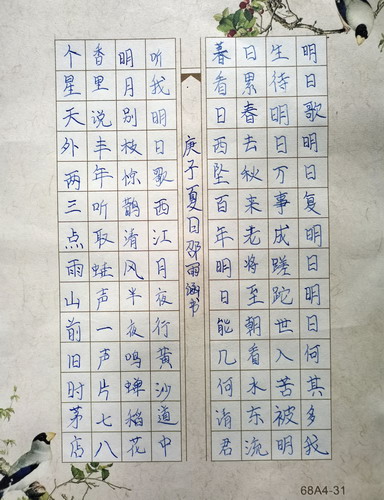 明日歌明日复明日明日何其多我
生待明日万事成蹉跎世人苦被明
日累春去秋来老将至朝看水东流
暮看日西坠百年明日能几何请君
庚子夏日邵丽涵书
听我明日歌西江月夜行黄沙道中
明月别枝惊鹊清风半夜鸣蝉稻花
香里说丰年听取蛙声一声片七八
个星天外两三点雨山前旧时茅店
68A4-31